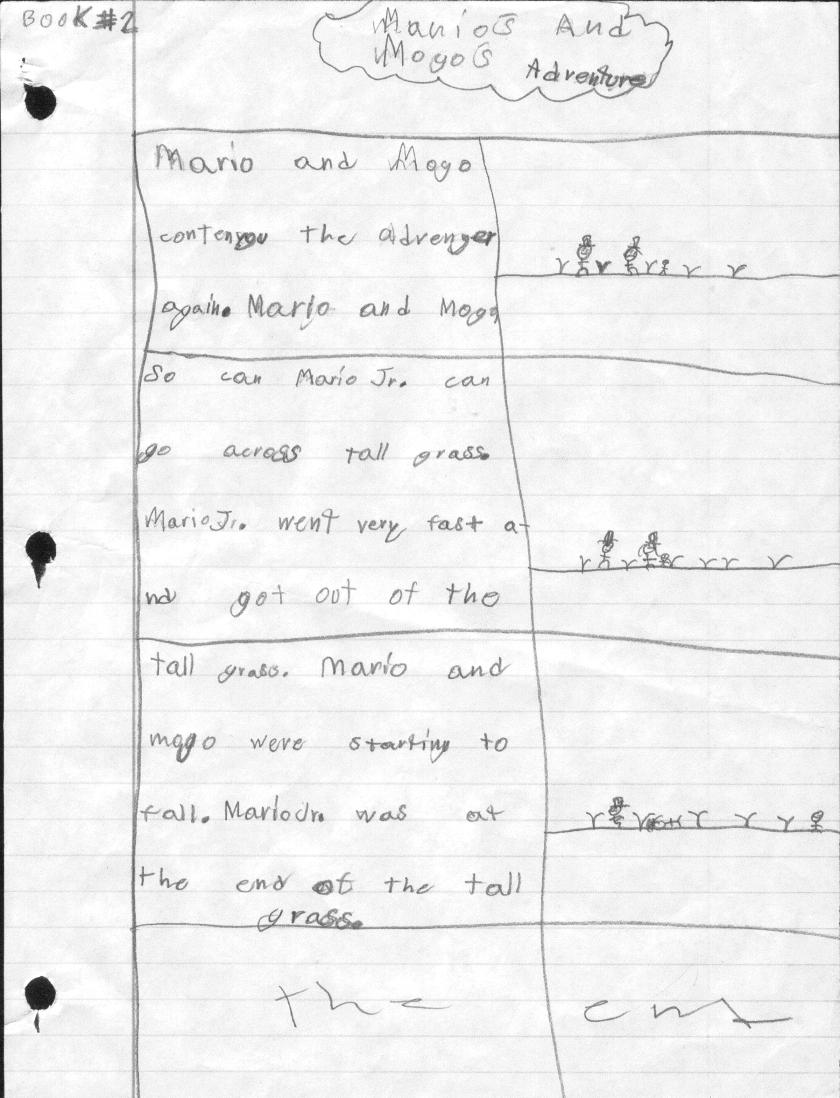 BOOK #2
Mario's And
Mogo's Adventure
Mario and Mogo
contenyou the advenger
again. Mario and Mogo
So can Mario Jr. can
go across tall grass.
Mario Jr. went very fast a-
nd got out of the
tall grass. Mario and
mogo were starting to
fall. Mario Jr. was at
the end of the tall
grass.
the end